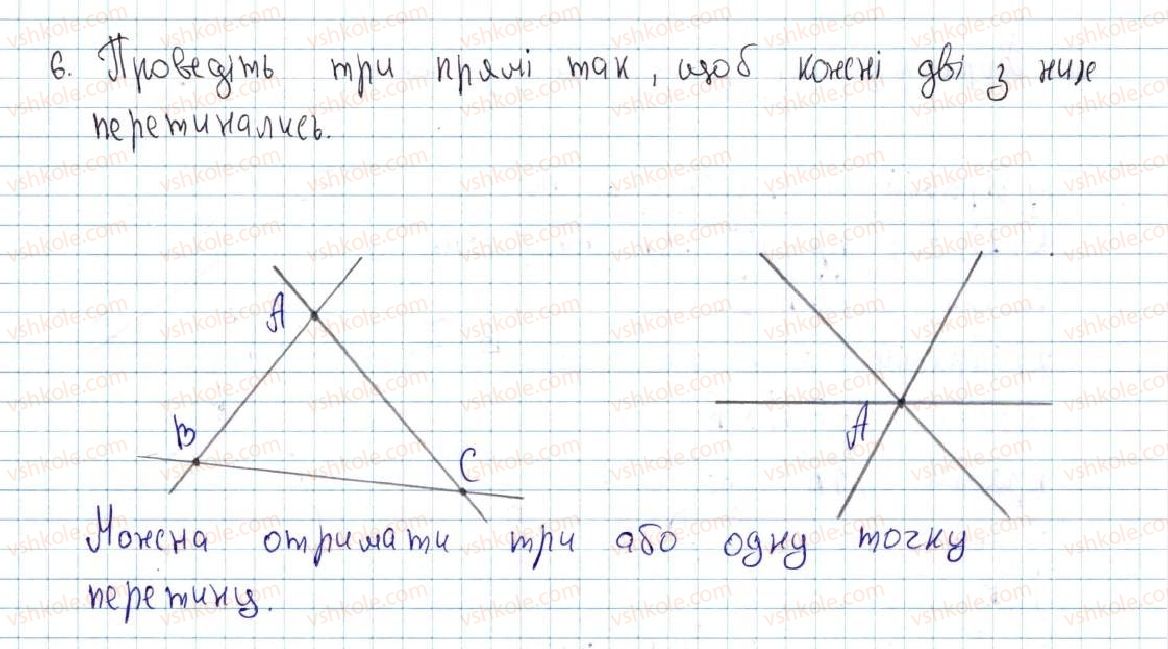 6. Проведіть три прямі так, щоб кожні дві з них
перетинались.
A
B
C
A
Можна отримати три або одну точку
перетину.
vshkole.com